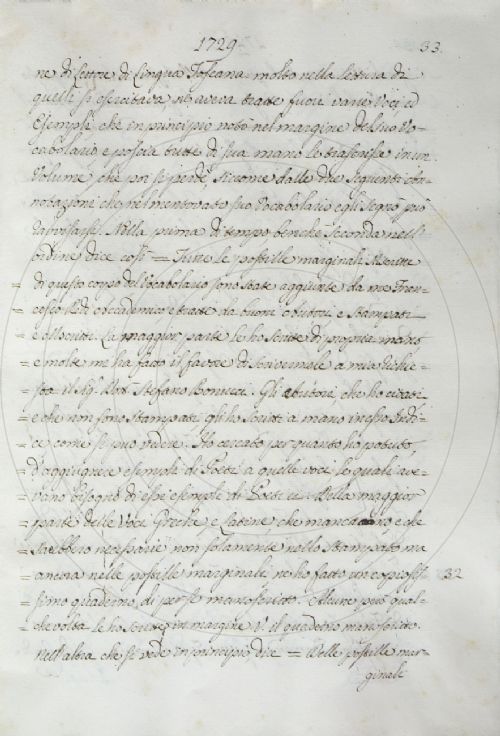 1729
33.
ne di Lettore di Lingua Toscana molto nella lettura di
quelli si esercitava ne aveva tratte fuori varie Voci, ed
Esempli, che in principio notò nel margine del suo Vo-
cabolario, e poscia tutte di sua mano le trascrisse in un
Volume, che poi si perdè, siccome dalle due seguenti an-
notazioni che nel mentovato suo Vocabolario egli segnò può
Nella prima di tempo benchè seconda nell'
ordine dice così = Tutte le postille marginali
= di questo corpo del Vocabolario sono state aggiunte da me Fran-
= cesco Redi Accademico e tratte da buoni Autori, e Stampati
= e Manoscritti. La maggior parte le ho scritte di propria mano
= e molte me ha fatto il favore di scrivermele a mia richie-
= sta il Sig.r Stefano Bonucci. Gli Autori, che ho citati
= e che non sono stampati gli ho scritti a mano in esso Indi-
= ce come si può vedere. Ho cercato per quanto ho potuto,
= d'aggiugnere esempli di Poeti a quelle voci, le quali ave-
= vano bisogno di essi esempli di Poeti Della maggior
= parte delle Voci Greche, e Latine, che mancano, e che
= sarebbero necessarie non solamente nello Stampato, ma
= ancora nelle postille marginali, ne ho fatto un copiosis- 32
= simo quaderno, di per se manoscritto. Alcune però qual-
= che volta le ho scritte in margine V. il quaderno manoscritto.
Nell'altra che si vede in principio, dice = Delle postille mar-
ginali